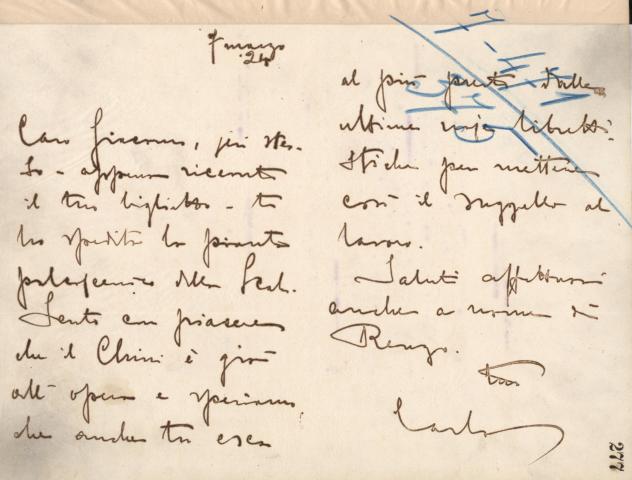 7 marzo
24
Caro Giacomo, jeri stes-
so - appena ricevuto
il tuo biglietto - ti
ho spedito la pianta
palcoscenico della Scala.
Sento con piacere
che il Chini è già
all'opera e speriamo
che anche tu esca
al più presto dalle
ultime noje libretti-
stiche per mettere
così il suggello al
lavoro.
Saluti affettuosi
anche a nome di
Renzo.
tuo
Carlo
277